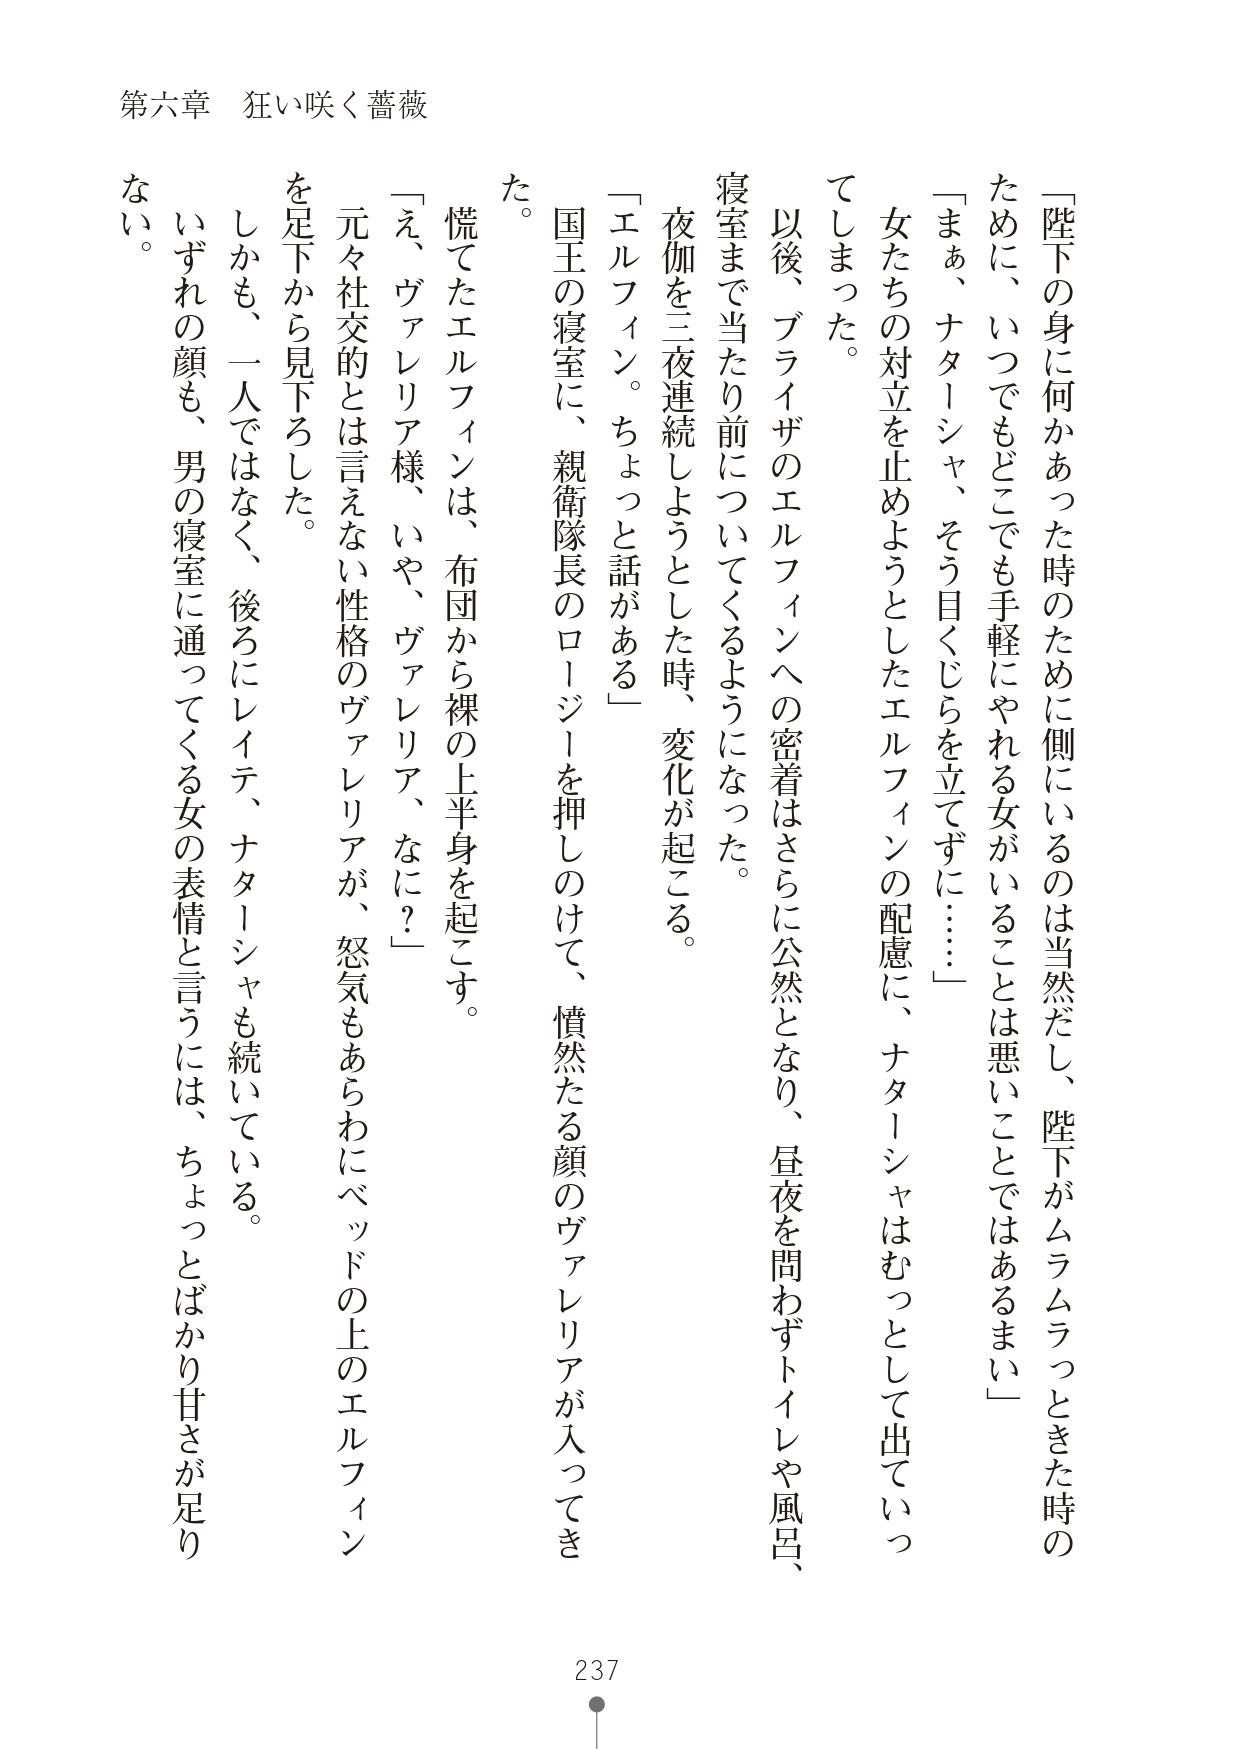 第六章　狂い咲く薔薇
「陛下の身に何かあった時のために側にいるのは当然だし、陛下がムラムラっときた時の
ために、いつでもどこでも手軽にやれる女がいることは悪いことではあるまい」
「まぁ、ナターシャ、そう目くじらを立てずに……」
　女たちの対立を止めようとしたエルフィンの配慮に、ナターシャはむっとして出ていっ
てしまった。
　以後、ブライザのエルフィンへの密着はさらに公然となり、昼夜を問わずトイレや風呂、
寝室まで当たり前についてくるようになった。
　夜伽を三夜連続しようとした時、変化が起こる。
「エルフィン。ちょっと話がある」
　国王の寝室に、親衛隊長のロージーを押しのけて、憤然たる顔のヴァレリアが入ってき
た。
　慌てたエルフィンは、布団から裸の上半身を起こす。
「え、ヴァレリア様、いや、ヴァレリア、なに？」
　元々社交的とは言えない性格のヴァレリアが、怒気もあらわにベッドの上のエルフィン
を足下から見下ろした。
　しかも、一人ではなく、後ろにレイテ、ナターシャも続いている。
　いずれの顔も、男の寝室に通ってくる女の表情と言うには、ちょっとばかり甘さが足り
ない。
237